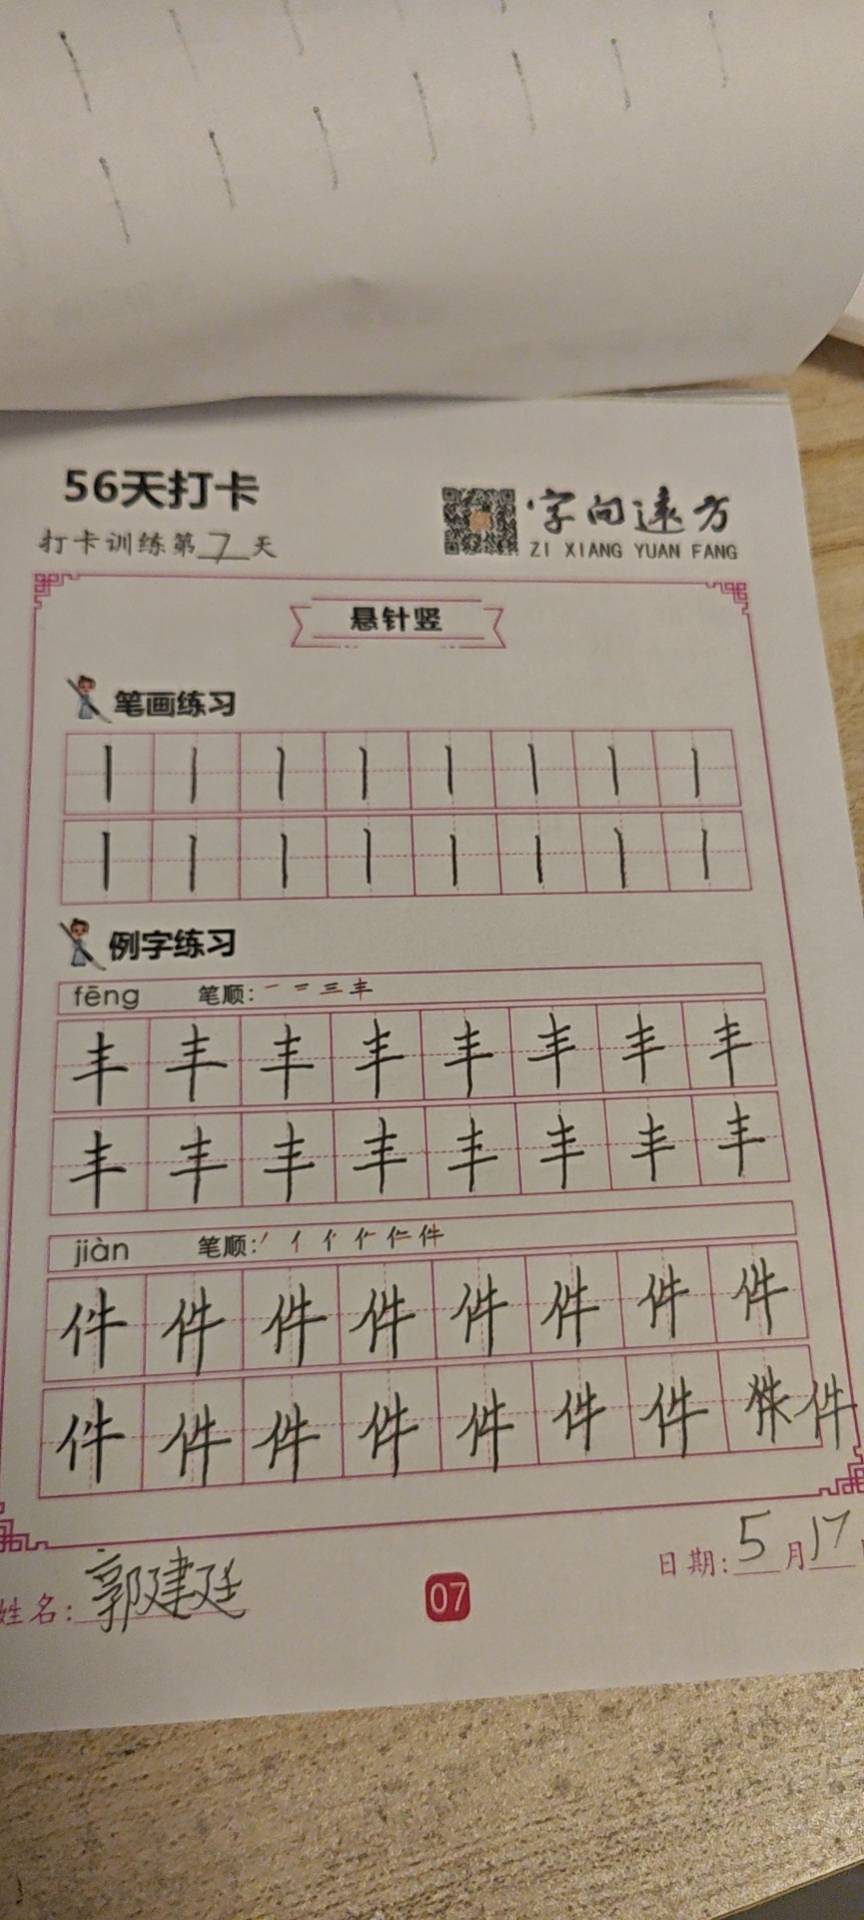 56天打卡
打卡训练第7天
字向远方
ZI XIANG YUAN FANG
悬针竖
笔画练习
丨丨丨丨丨丨丨丨
丨丨丨丨丨丨丨丨
例字练习
fēng 笔顺: 一 二 三 丰
丰丰丰丰丰丰丰丰
丰丰丰丰丰丰丰丰
jiàn 笔顺: 丿 亻 仁 件
件件件件件件件件
件件件件件件件件
姓名: 郭建廷
07
日期: 5月17